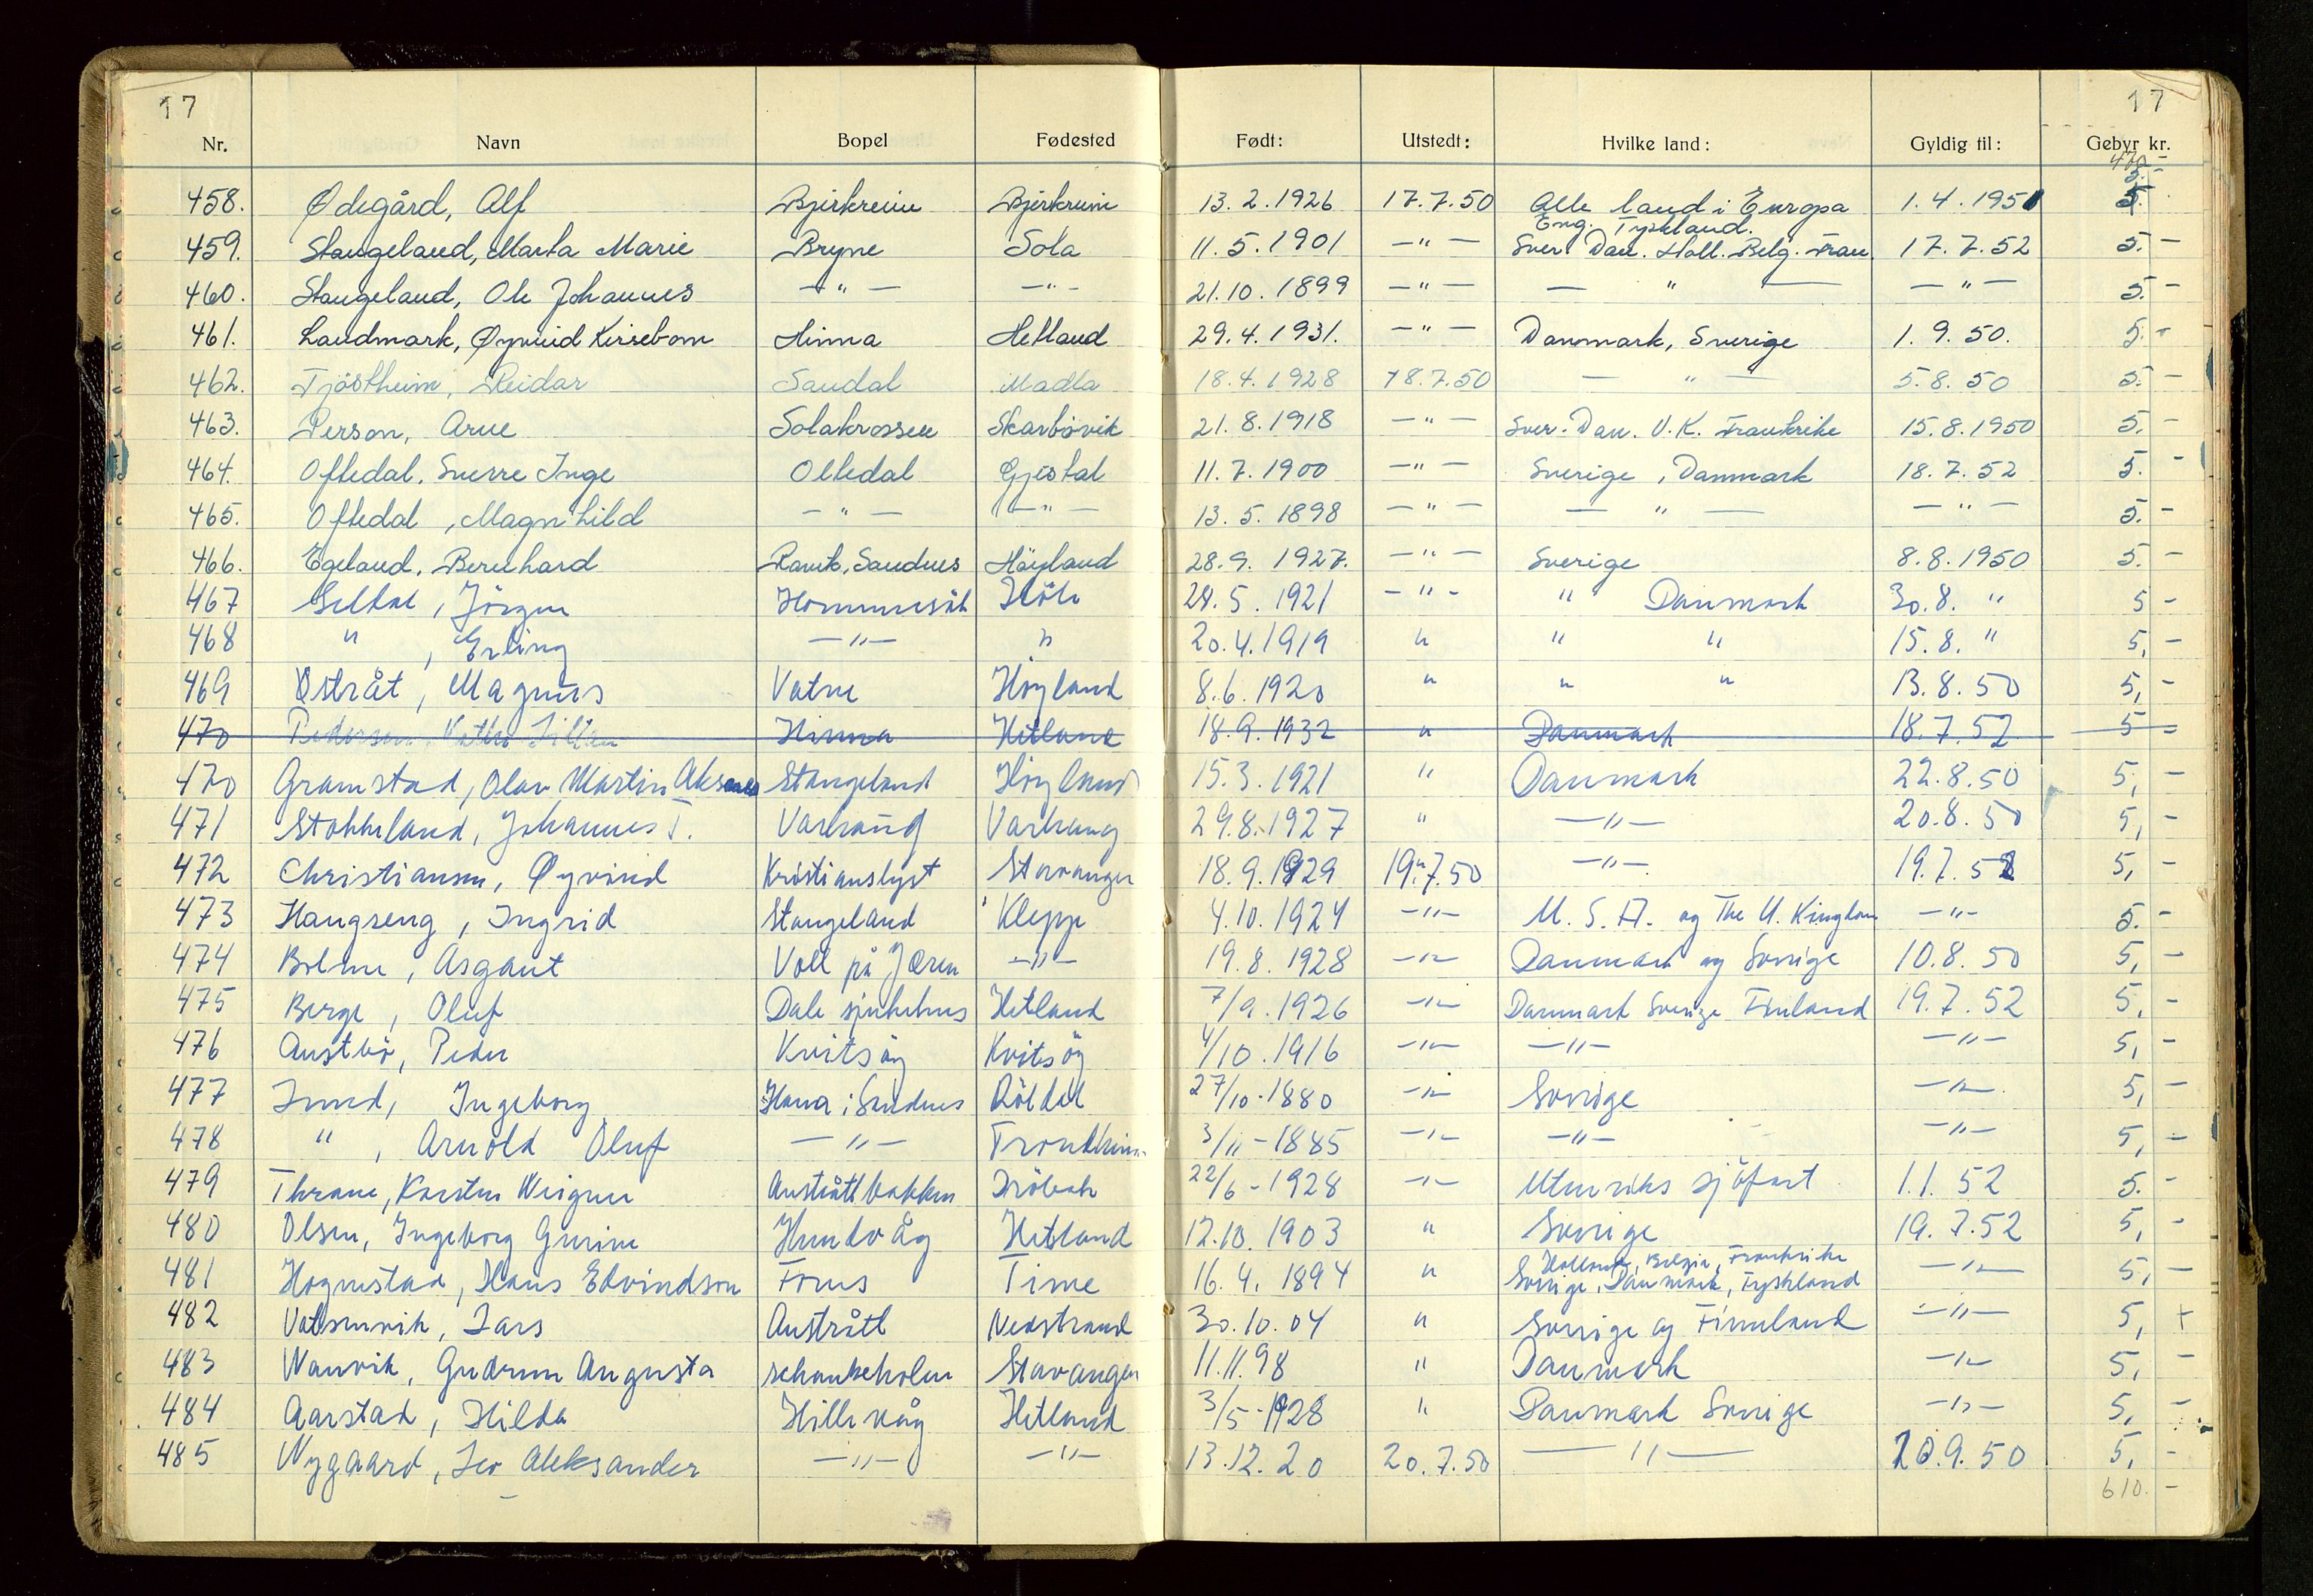 17 17
Nr. Navn Bopel Fødested Født: Utstedt: Hvilke land: Gyldig til: Gebyr kr.
458. Ødegård, Alf Bjerkreim Bjerkreim 13.2.1926 17.7.50 Alle land i Europa 1.4.1951 5.
Eng. Tyskland.
459. Stangeland, Marta Marie Bryne Sola 11.5.1901 —"— Sver. Dan. Holl. Belg. Fran. 17.7.52 5.-
460. Stangeland, Ole Johannes —"— —"— 21.10.1899 —"— — " — —"— 5.-
461. Landmark, Øyvind Kirsebom Hinna Hetland 29.4.1931. —"— Danmark, Sverige 1.9.50. 5.-
462. Tjöstheim, Reidar Sandal Madla 18.4.1928 18.7.50 — " — 5.8.50 5.-
463. Person, Arne Solakrossen Skarbövik 21.8.1918 —"— Sver. Dan. U.K. Frankrike 15.8.1950 5.-
464. Oftedal, Sverre Inge Oltedal Gjestal 11.7.1900 —"— Sverige, Danmark 18.7.52 5.-
465. Oftedal, Magnhild —"— —"— 13.5.1898 —"— — " — —"— 5.-
466. Egeland, Bernhard Ravik, Sandnes Höyland 28.9.1927. —"— Sverige 8.8.1950 5.-
467 Seldal, Jörgen Hommersåk Höle 28.5.1921 -"- " Danmark 30.8. " 5 -
468 " , Erling —"— " 20.4.1919 " " " 15.8. " 5,-
469 Østråt, Magnus Vatne Höyland 8.6.1920 " " " 13.8.50 5,-
470 Pedersen, Lillian Hinna Hetland 18.9.1932 " Danmark 18.7.52 5 -
470 Gramstad, Olav Martin Aksel Stangeland Höyland 15.3.1921 " Danmark 22.8.50 5,-
471 Stokkeland, Johannes T. Varhaug Varhaug 29.8.1927 " —"— 20.8.50 5,-
472 Christiansen, Øyvind Kristianslyst Stavanger 18.9.1929 19.7.50 —"— 19.7.52 5,-
473 Haugseng, Ingrid Stangeland Klepp 4.10.1924 —"— U.S.A. og The U. Kingdom —"— 5.-
474 Bolme, Asgaut Voll på Jæren —"— 19.8.1928 —"— Danmark og Sverige 10.8.50 5,-
475 Berge, Oluf Dale sjukehus Hetland 7/9.1926 —"— Danmark Sverige Finland 19.7.52 5,-
476 Austbö, Peder Kvitsöy Kvitsöy 4/10.1916 —"— —"— —"— 5,-
477 Lund, Ingeborg Hana i Sandnes Röldal 27/10-1880 —"— Sverige —"— 5,-
478 " , Arnold Oluf —"— Trondheim 3/11-1885 —"— —"— —"— 5,-
479 Thrane, Karsten Austråttbakken Dröbak 22/6-1928 —"— Utenriks sjöfart 1.1.52 5.-
480 Olsen, Ingeborg Gurine Hundvåg Hetland 12.10.1903 " Sverige 19.7.52 5,-
Holland, Belgia, Frankrike
481 Hognestad, Hans Edvindson Forus Time 16.4.1894 " Sverige, Danmark, Tyskland —"— 5,-
482 Vatsenvik, Lars Austrått Nedstrand 30.10.04 " Sverige og Finnland —"— 5,+
483 Wanvik, Gudrun Augusta schankeholm Stavanger 11.11.98 " Danmark —"— 5,-
484 Aarstad, Hilda Hillevåg Hetland 3/5-1928 " Danmark Sverige —"— 5,-
485 Nygaard, Leo Aleksander —"— —"— 13.12.20 20.7.50 —"— 20.9.50 5,-
610.-